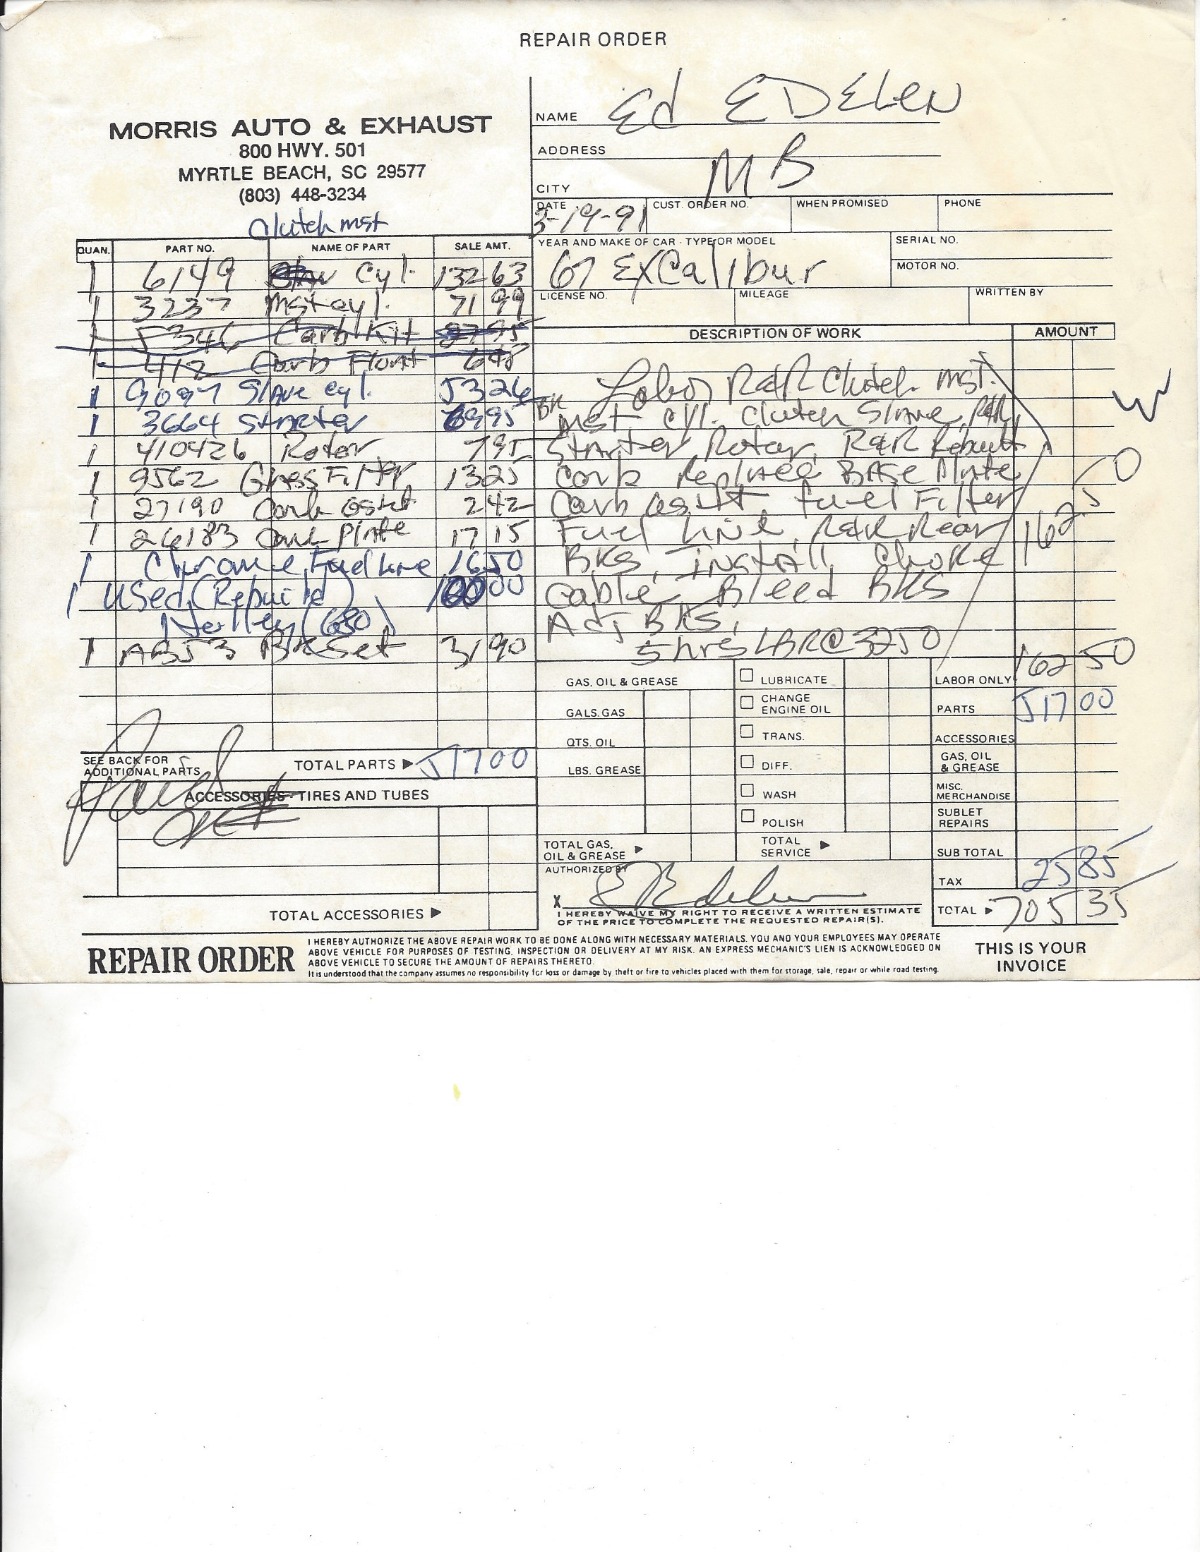 REPAIR ORDER
MORRIS AUTO & EXHAUST
800 HWY. 501
MYRTLE BEACH, SC 29577
(803) 448-3234
NAME Ed EDELEN
ADDRESS
CITY MB
DATE 3-19-91 CUST. ORDER NO. WHEN PROMISED PHONE
YEAR AND MAKE OF CAR - TYPE OR MODEL 67 ExCalibur SERIAL NO.
MOTOR NO.
LICENSE NO. MILEAGE WRITTEN BY
Clutch mst
QUAN. PART NO. NAME OF PART SALE AMT.
1 6149 Cyl. 132 63
1 3237 Mst cyl. 71 99
1 5346 Carb Kit
1 412 Carb Float
1 9097 Slave cyl. 53 26
1 3664 Starter 69 95
1 410426 Rotor 7 95
1 9562 Glass Filter 13 25
1 27190 Carb Gskt 2 42
1 26183 Carb Plate 17 15
1 Chrome Fuel Line 16 50
1 Used (Rebuild) 100 00
Holley (650)
1 AB53 Bk Set 31 90
SEE BACK FOR ADDITIONAL PARTS TOTAL PARTS ▶ 517 00
ACCESSORIES - TIRES AND TUBES
TOTAL ACCESSORIES ▶
DESCRIPTION OF WORK AMOUNT
Labor R&R Clutch mst.
BK Mst cyl. Clutch Slave, R&R
Starter Rotor, R&R Rebuilt
Carb Replaced Base Plate
Carb Gskt fuel Filter
Fuel Line, R&R Rear 162 50
BKS, Install Choke
Cable Bleed BKS
Adj BKS,
5 hrs LBR @ 3250
GAS, OIL & GREASE
GALS. GAS
QTS. OIL
LBS. GREASE
TOTAL GAS, OIL & GREASE ▶
LUBRICATE
CHANGE ENGINE OIL
TRANS.
DIFF.
WASH
POLISH
TOTAL SERVICE ▶
LABOR ONLY 162 50
PARTS 517 00
ACCESSORIES
GAS, OIL & GREASE
MISC. MERCHANDISE
SUBLET REPAIRS
SUB TOTAL
TAX 25 85
TOTAL ▶ 705 35
AUTHORIZED BY
X E Edelen
I HEREBY WAIVE MY RIGHT TO RECEIVE A WRITTEN ESTIMATE
OF THE PRICE TO COMPLETE THE REQUESTED REPAIR(S).
REPAIR ORDER
I HEREBY AUTHORIZE THE ABOVE REPAIR WORK TO BE DONE ALONG WITH NECESSARY MATERIALS. YOU AND YOUR EMPLOYEES MAY OPERATE
ABOVE VEHICLE FOR PURPOSES OF TESTING, INSPECTION OR DELIVERY AT MY RISK. AN EXPRESS MECHANIC'S LIEN IS ACKNOWLEDGED ON
ABOVE VEHICLE TO SECURE THE AMOUNT OF REPAIRS THERETO.
It is understood that the company assumes no responsibility for loss or damage by theft or fire to vehicles placed with them for storage, sale, repair or while road testing.
THIS IS YOUR
INVOICE